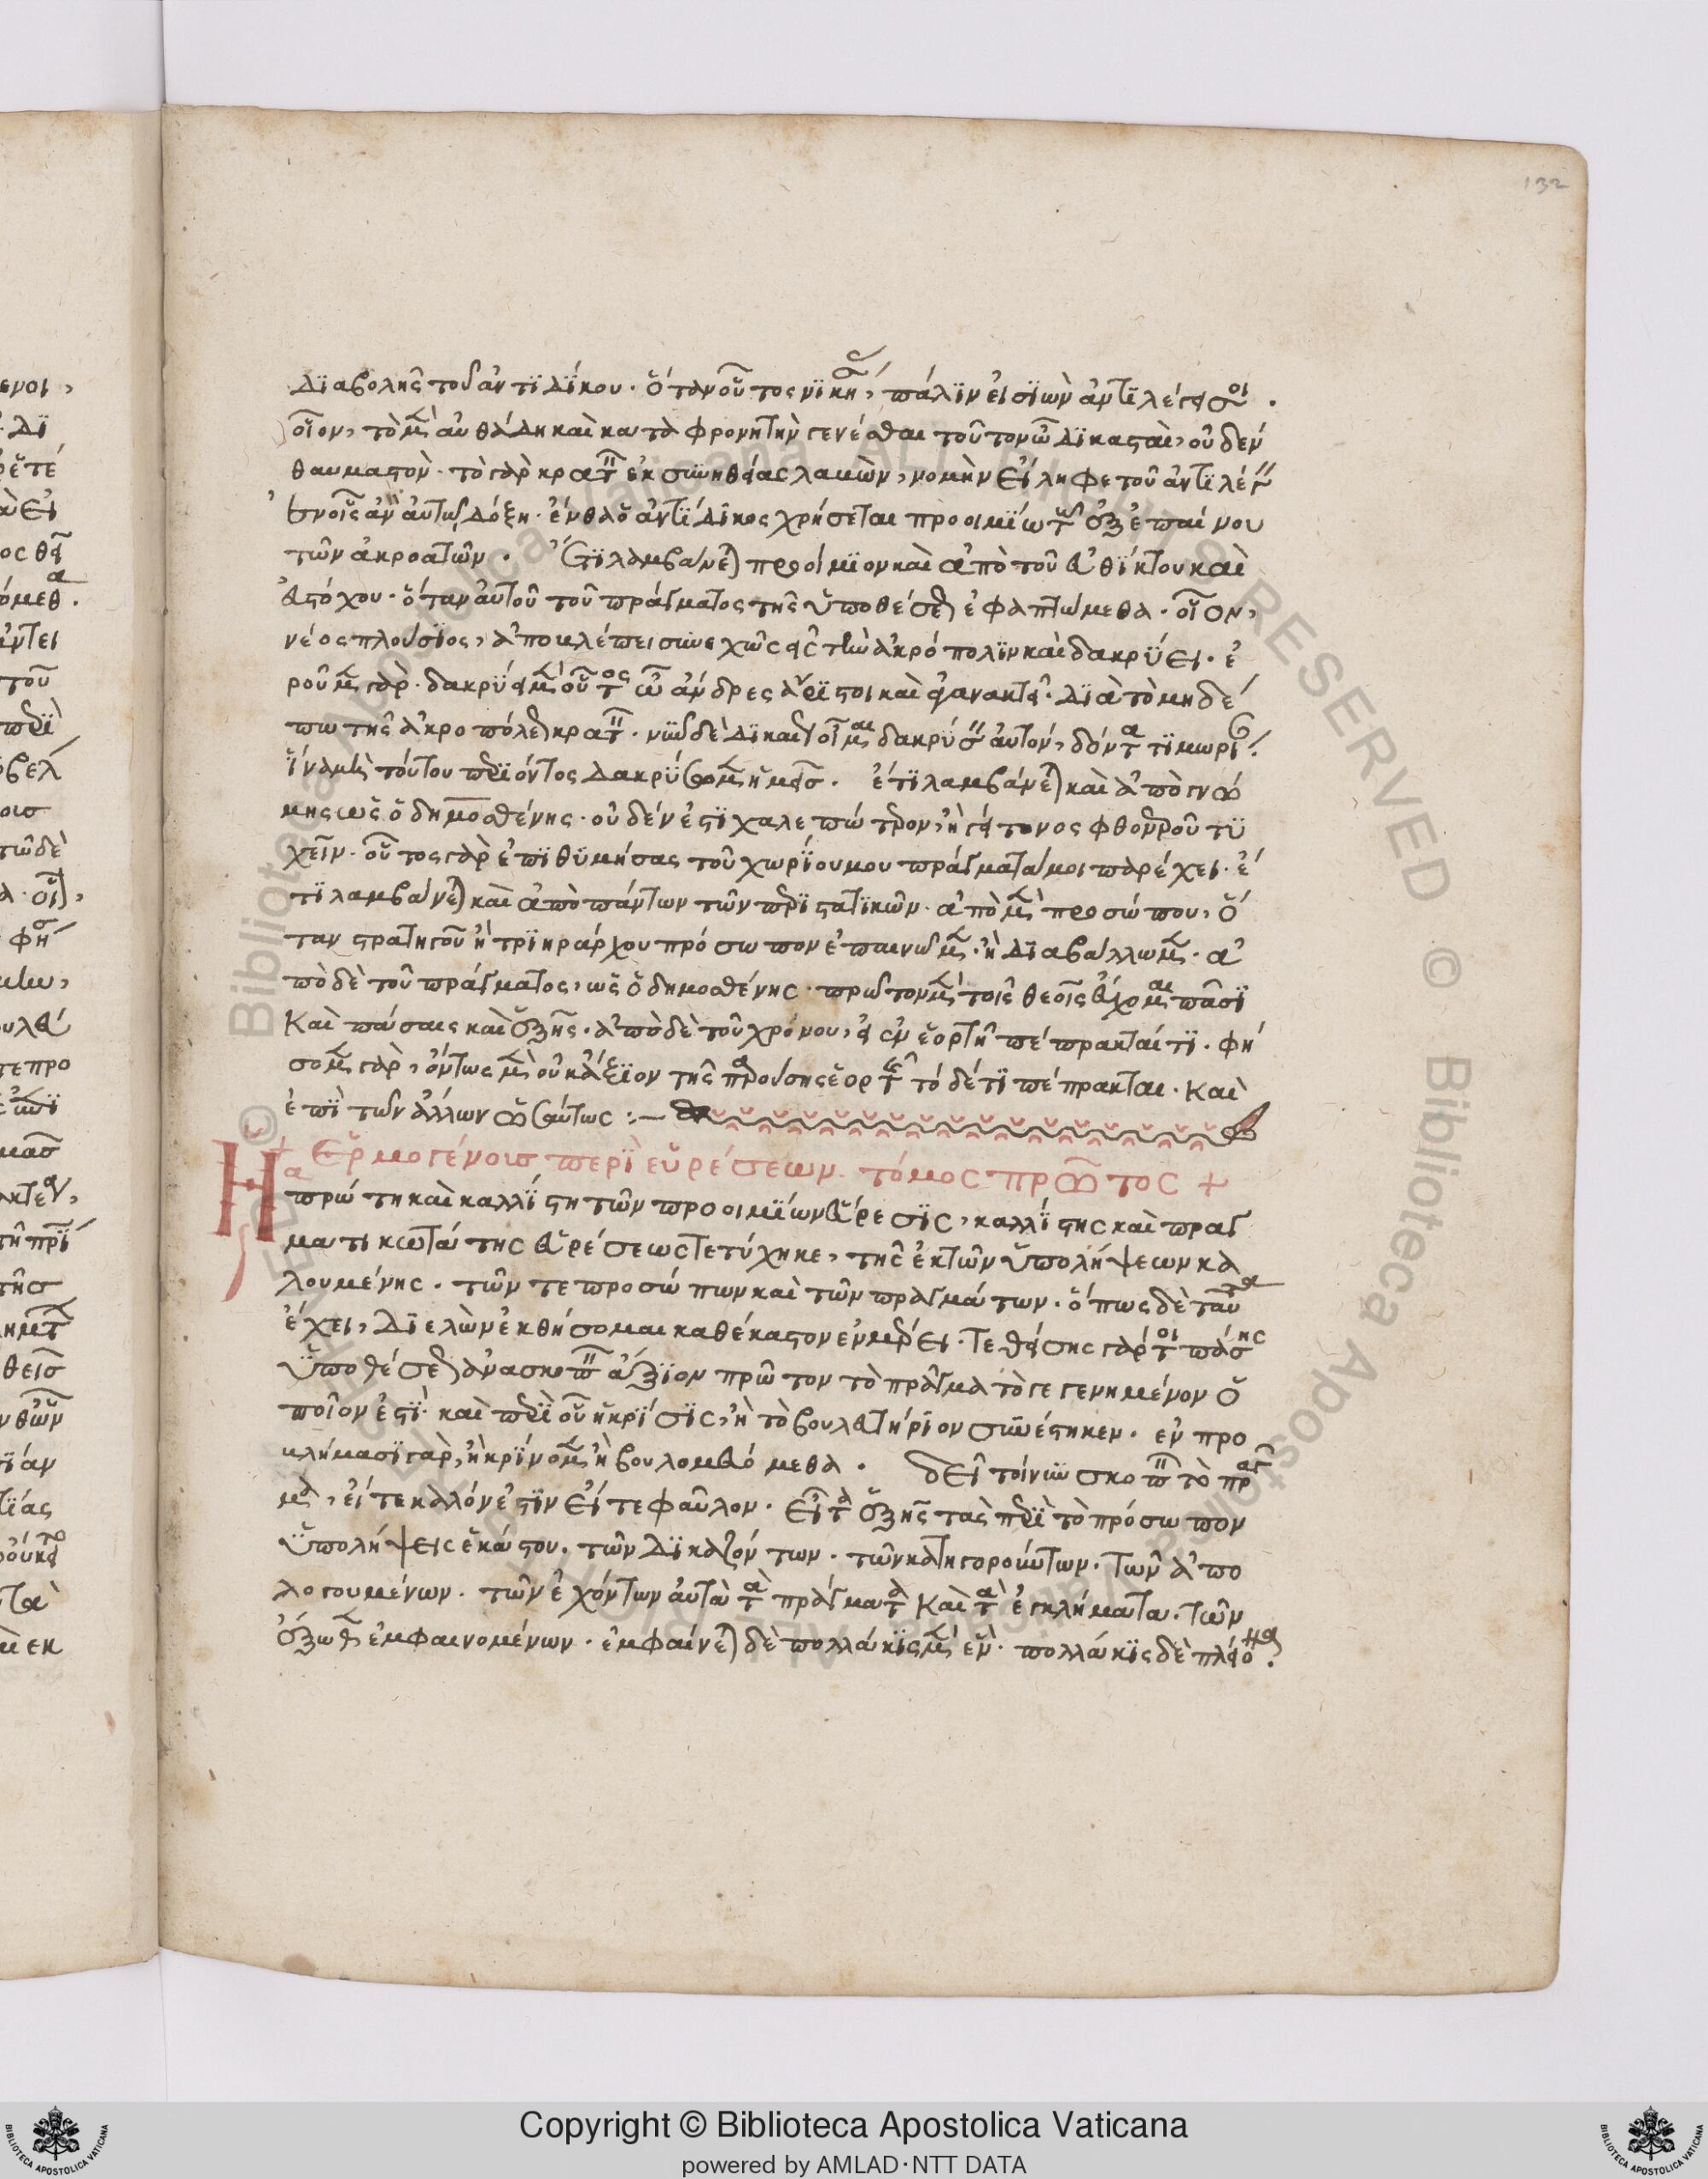 132
διαβολῆς τοῦ ἀντιδίκου· ὅταν οὗτος νικήσας, πάλιν εἰσιὼν ἀντιλέγουσιν οἱ.
οἷον, τὸ μὲν αὐθάδη καὶ καταφρονητὴν γενέσθαι τοῦτον ὦ δικασταὶ, οὐδὲν
θαυμαστὸν· τὸ γὰρ κρατεῖν ἐκ συνηθείας λαβὼν, νομὴν εἴληφε τοῦ ἀντιλέγειν
ἐν οἷς ἂν αὐτῷ δόξη· ἔνθα ὁ ἀντίδικος χρήσεται προοιμίω τῶ ἐξ ἐπαίνου
τῶν ἀκροατῶν. ἔτι λαμβάνεται προοίμιον καὶ ἀπὸ τοῦ εὐθίκτου καὶ
εὐστόχου· ὅταν αὐτοῦ τοῦ πράγματος τῆς ὑποθέσεως ἐφαπτώμεθα· οἷον,
νέος πλούσιος, ἀποβλέπει συνεχῶς εἰς τὴν ἀκρόπολιν καὶ δακρύει· ἐ
ροῦμεν γὰρ· δακρύει μὲν οὗτος ὦ ἄνδρες ἄριστοι καὶ ἀγανακτεῖ· διὰ τὸ μηδέ
πω τῆς ἀκροπόλεως κρατεῖν· νῦν δὲ δίκαιοι ἐσμὲν δακρύσειν αὐτόν, δόντα τιμωρίαν.
ἵνα μὴ τούτου περιόντος δακρύσωμεν ἡμεῖς. ἔτι λαμβάνεται καὶ ἀπὸ γνώ
μης ὡς ὁ δημοσθένης· οὐδέν ἐστι χαλεπώτερον, ἢ γείτονος φθονεροῦ τυ
χεῖν· οὗτος γὰρ ἐπιθυμήσας τοῦ χωρίου μου πράγματά μοι παρέχει· ἔ
τι λαμβάνεται καὶ ἀπὸ πάντων τῶν περιστατικῶν· ἀπὸ μὲν προσώπου, ὅ
ταν στρατηγοῦ ἢ τριηράρχου πρόσωπον ἐπαινῶμεν· ἢ διαβάλλωμεν· ἀ
πὸ δὲ τοῦ πράγματος, ὡς ὁ δημοσθένης· πρῶτον μὲν τοῖς θεοῖς εὔχομαι πᾶσι
καὶ πάσαις καὶ ἑξῆς· ἀπὸ δὲ τοῦ χρόνου, εἰ ἐν ἑορτῆ πέπρακταί τι· φή
σομεν γὰρ, ὄντως μὲν οὐκ ἄξιον τῆς παρούσης ἑορτῆς τόδέ τι πέπρακται· καὶ
ἐπὶ τῶν ἄλλων ὡσαύτως :—
+ Ἑρμογένους περὶ εὑρέσεων· τόμος πρῶτος +
Ἡ πρώτη καὶ καλλίστη τῶν προοιμίων εὕρεσις, καλλίστης καὶ πραγ
ματικωτάτης εὑρέσεως τετύχηκε, τῆς ἐκ τῶν ὑπολήψεων κα
λουμένης· τῶν τε προσώπων καὶ τῶν πραγμάτων· ὅπως δὲ ταῦτα
ἔχει, διελὼν ἐκθήσομαι καθέκαστον ἐν μέρει· τεθείσης γάρ τοι πάσης
ὑποθέσεως ἀνασκοπεῖν ἄξιον πρῶτον τὸ πρᾶγμα τὸ γεγενημένον ὁ
ποῖον ἐστί· καὶ περὶ οὗ ἡ κρίσις, ἢ τὸ βουλευτήριον συνέστηκεν· ἐν προ
βλήμασι γὰρ, ἢ κρίνομεν ἢ βουλομευόμεθα. δεῖ τοίνυν σκοπεῖν τὸ πρᾶγ
μα, εἴτε καλόν ἐστιν εἴτε φαῦλον· εἶτα ἑξῆς τὰς περὶ τὸ πρόσωπον
ὑπολήψεις ἑκάστου· τῶν δικαζόντων· τῶν κατηγορούντων· τῶν ἀπο
λογουμένων· τῶν ἐχόντων αὐτὰ τὰ πράγματα καὶ τὰ ἐγκλήματα· τῶν
ἔξωθεν ἐμφαινομένων· ἐμφαίνεται δὲ πολλάκις μὲν ἓν· πολλάκις δὲ πλείονα.